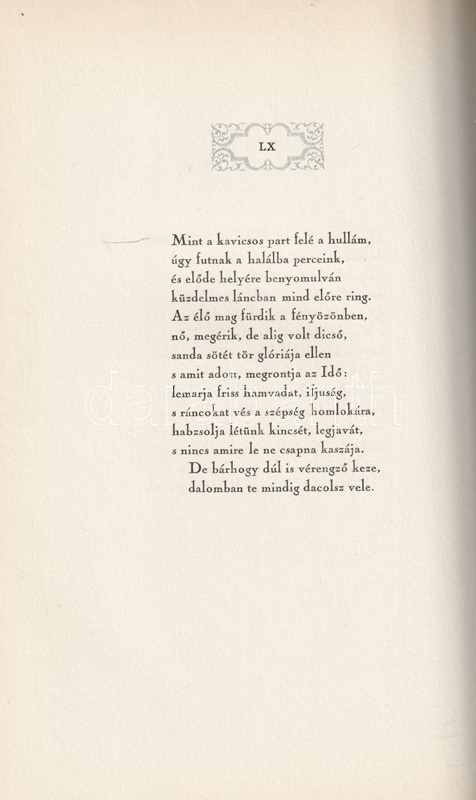 LX
Mint a kavicsos part felé a hullám,
úgy futnak a halálba perceink,
és előde helyére benyomulván
küzdelmes láncban mind előre ring.
Az élő mag fürdik a fényözönben,
nő, megérik, de alig volt dicső,
sanda sötét tör glóriája ellen
s amit adott, megrontja az Idő:
lemarja friss hamvadat, ifjuság,
s ráncokat vés a szépség homlokára,
habzsolja létünk kincsét, legjavát,
s nincs amire le ne csapna kaszája.
De bárhogy dúl is vérengző keze,
dalomban te mindig dacolsz vele.